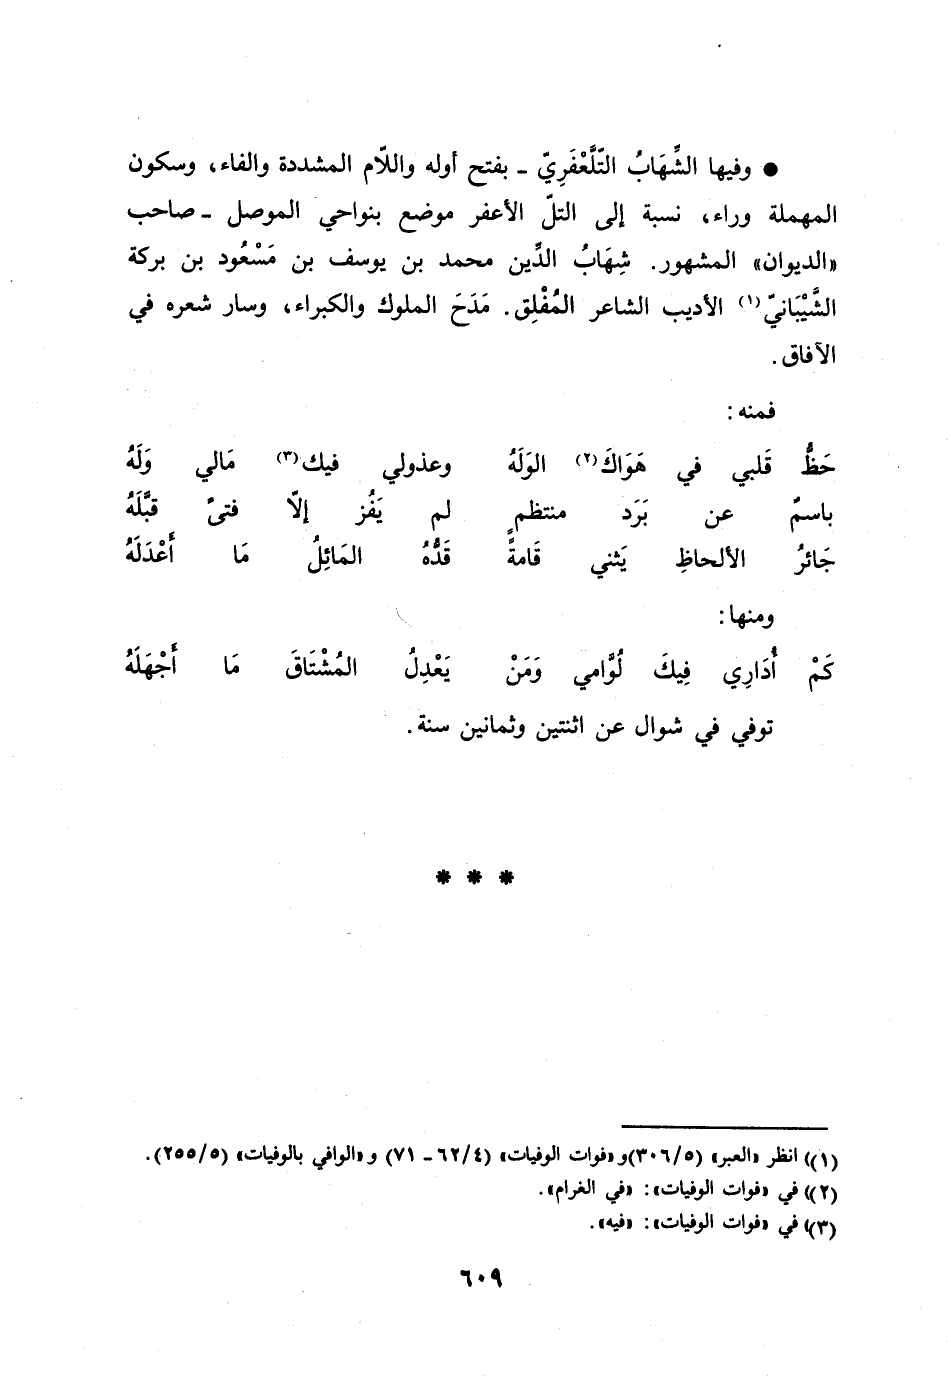 ● وفيها الشِّهَابُ التَّلَّعْفَرِيّ ـ بفتح أوله واللّام المشددة والفاء، وسكون
المهملة وراء، نسبة إلى التلّ الأعفر موضع بنواحي الموصل ـ صاحب
«الديوان» المشهور. شِهَابُ الدِّين محمد بن يوسف بن مَسْعُود بن بركة
الشَّيْبَانيّ (١) الأديب الشاعر المُفْلِق. مَدَحَ الملوك والكبراء، وسار شعره في
الآفاق.
فمنه:
حَظُّ قَلبي في هَوَاكَ (٢) الوَلَهُ وعذولي فيك (٣) مَالي وَلَهُ
باسمٌ عن بَرَد منتظمٍ لم يَفُز إلّا فتىً قبَّلَهُ
جَائرُ الألحاظِ يَثني قَامةً قَدُّهُ المَائِلُ مَا أَعْدَلَهُ
ومنها:
كَمْ أُدَارِي فِيكَ لُوَّامي وَمَنْ يَعْدِلُ المُشْتَاقَ مَا أَجْهَلَهُ
توفي في شوال عن اثنتين وثمانين سنة.
* * *
(١) انظر «العبر» (٣٠٦/٥) و«فوات الوفيات» (٦٢/٤ ـ ٧١) و«الوافي بالوفيات» (٢٥٥/٥).
(٢) في «فوات الوفيات»: «في الغرام».
(٣) في «فوات الوفيات»: «فيه».
٦٠٩